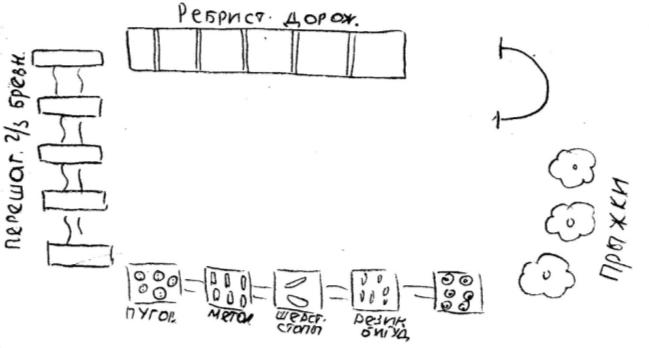 Ребрист. дорож.
перешаг. ч/з бревн.
прыжки
пугов.
метал
шерст.
стопы
резин
бигуд